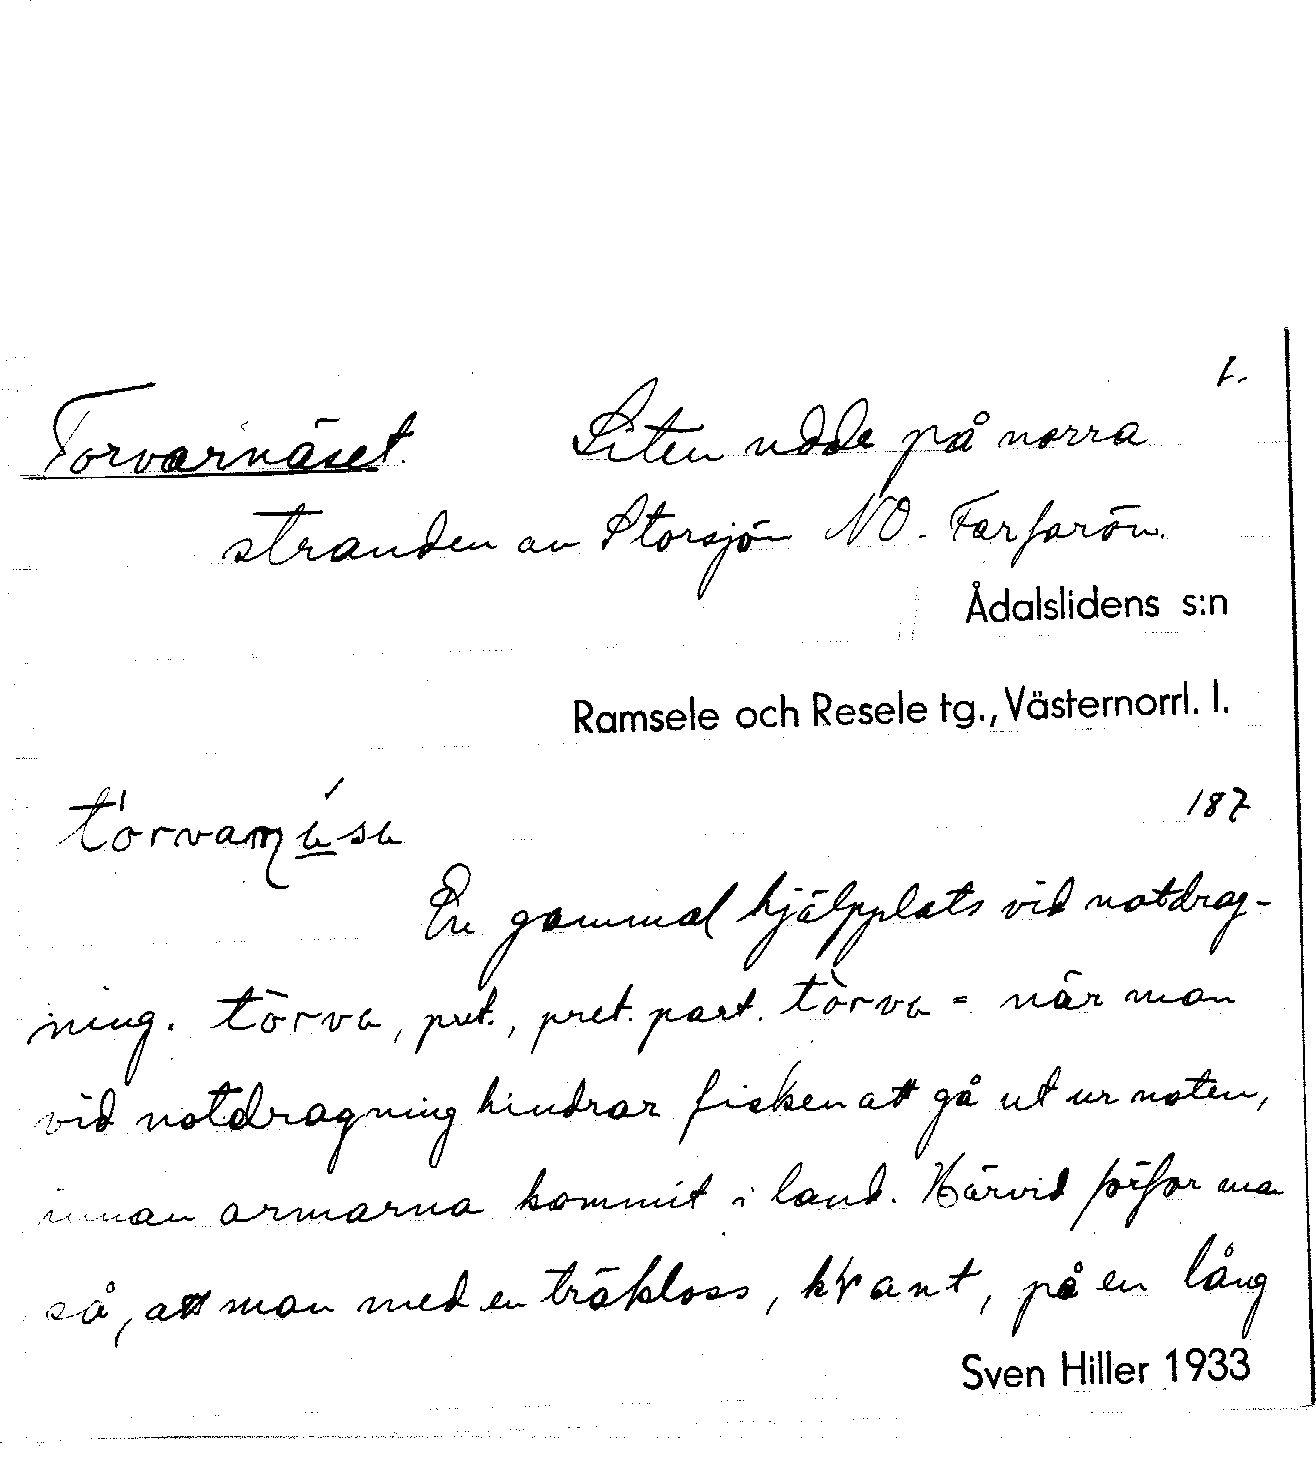 1.
Torvarnäset. Liten udde på norra
stranden av Storsjön NO. Farfarön.
Ådalslidens s:n
Ramsele och Resele tg., Västernorrl. l.
187
En gammal hjälpplats vid notdrag-
ning. tòrva, pret., pret. part. tòrva = när man
vid notdragning hindrar fisken att gå ut ur noten,
innan armarna kommit i land. Härvid förfar ma
så, att man med en träkloss, kvant, på en lång
Sven Hiller 1933